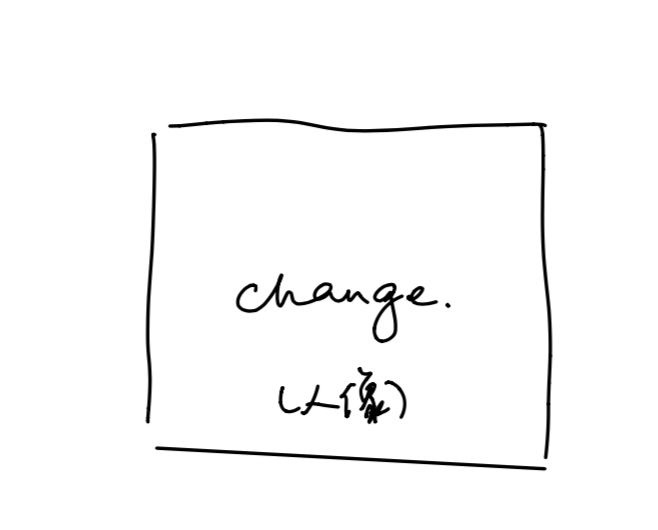 change.
(人像)